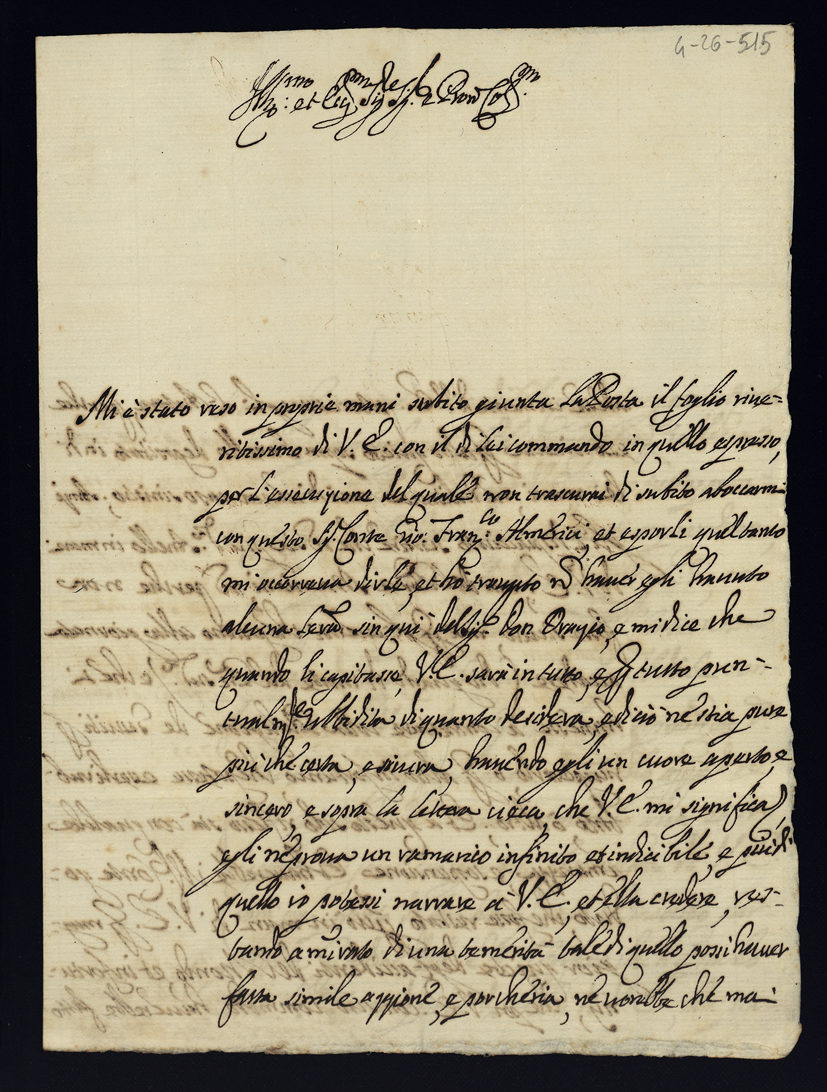 4-26-515
Ill.mo et Ecc.mo Sig.re Sig.r e Pron Col.mo
Mi è stato reso in proprie mani subito giunta La Posta il foglio rive=
ritissimo di V. E. con il di lei commando in quello espresso,
per l'essecuzione del quale non trascurai di subito aboccarmi
con questo Sig.r Conte Gio: Fran.co Almerici, et esporli quel tanto
mi occorreua dirle, et hò trouato nõ hauer egli hauuto
alcuna lettra sin quì del Sig.r Don Orazio, e mi dice che
quando li capitasse, V. E. sarà in tutto, e p tutto pun=
tualm.te Ubbidita di quanto desidera, e di ciò ne stia pure
più che certa, e sicura, hauendo egli un cuore aperto, e
sincero, e sopra la lettera cieca, che V. E. mi significa,
egli ne proua un ramarico infinito et indicibile, e più di
quello io potessi narrare à V. E., et ella credere, res=
tando amirato di una temerità tale di quello possi hauer
fatta simile azzione, e porcheria, ne uorebbe che mai